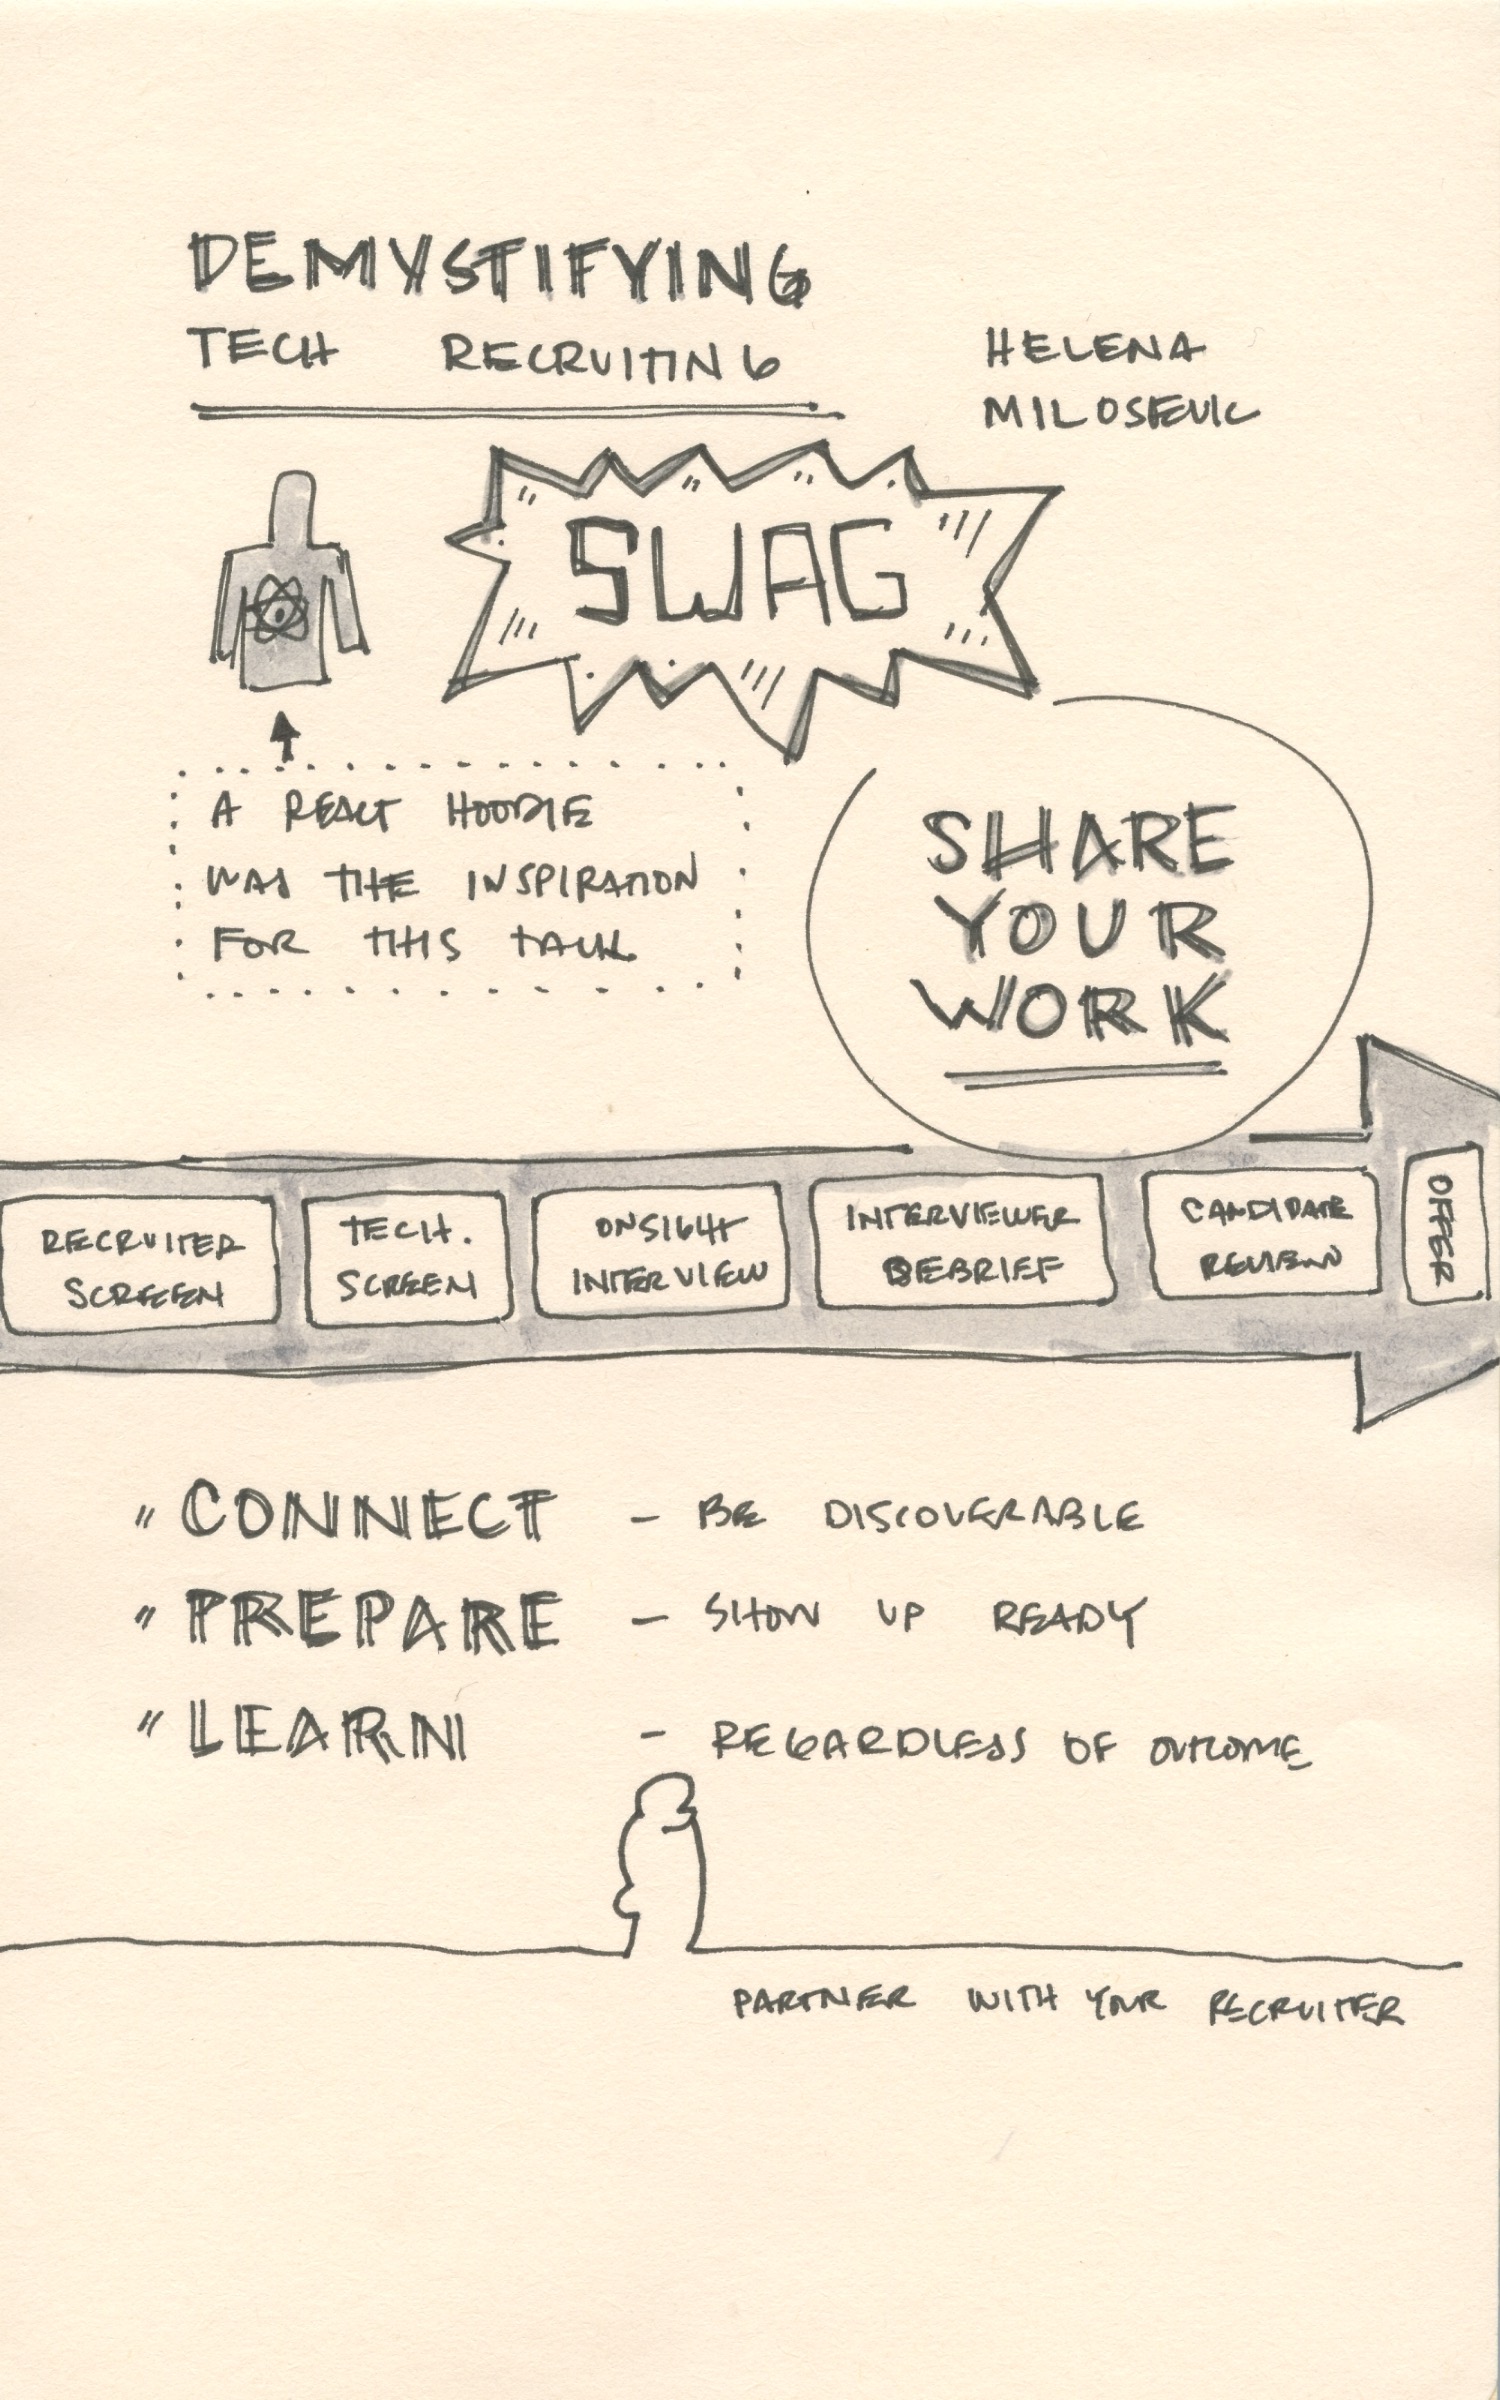 DEMYSTIFYING
TECH RECRUITING
HELENA
MILOSEVIC
SWAG
A REACT HOODIE
WAS THE INSPIRATION
FOR THIS TALK
SHARE
YOUR
WORK
RECRUITER
SCREEN
TECH.
SCREEN
ONSIGHT
INTERVIEW
INTERVIEWER
DEBRIEF
CANDIDATE
REVIEW
OFFER
" CONNECT - BE DISCOVERABLE
" PREPARE - SHOW UP READY
" LEARN - REGARDLESS OF OUTCOME
PARTNER WITH YOUR RECRUITER